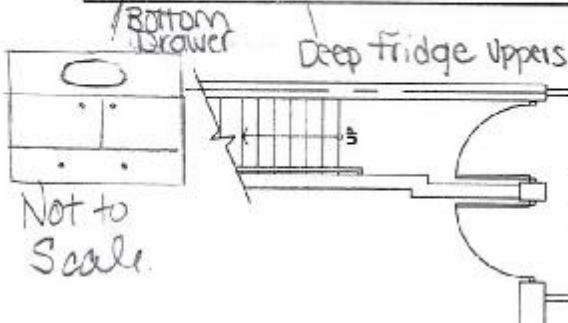 Bottom
Drawer
Deep fridge uppers
UP
Not to
Scale.